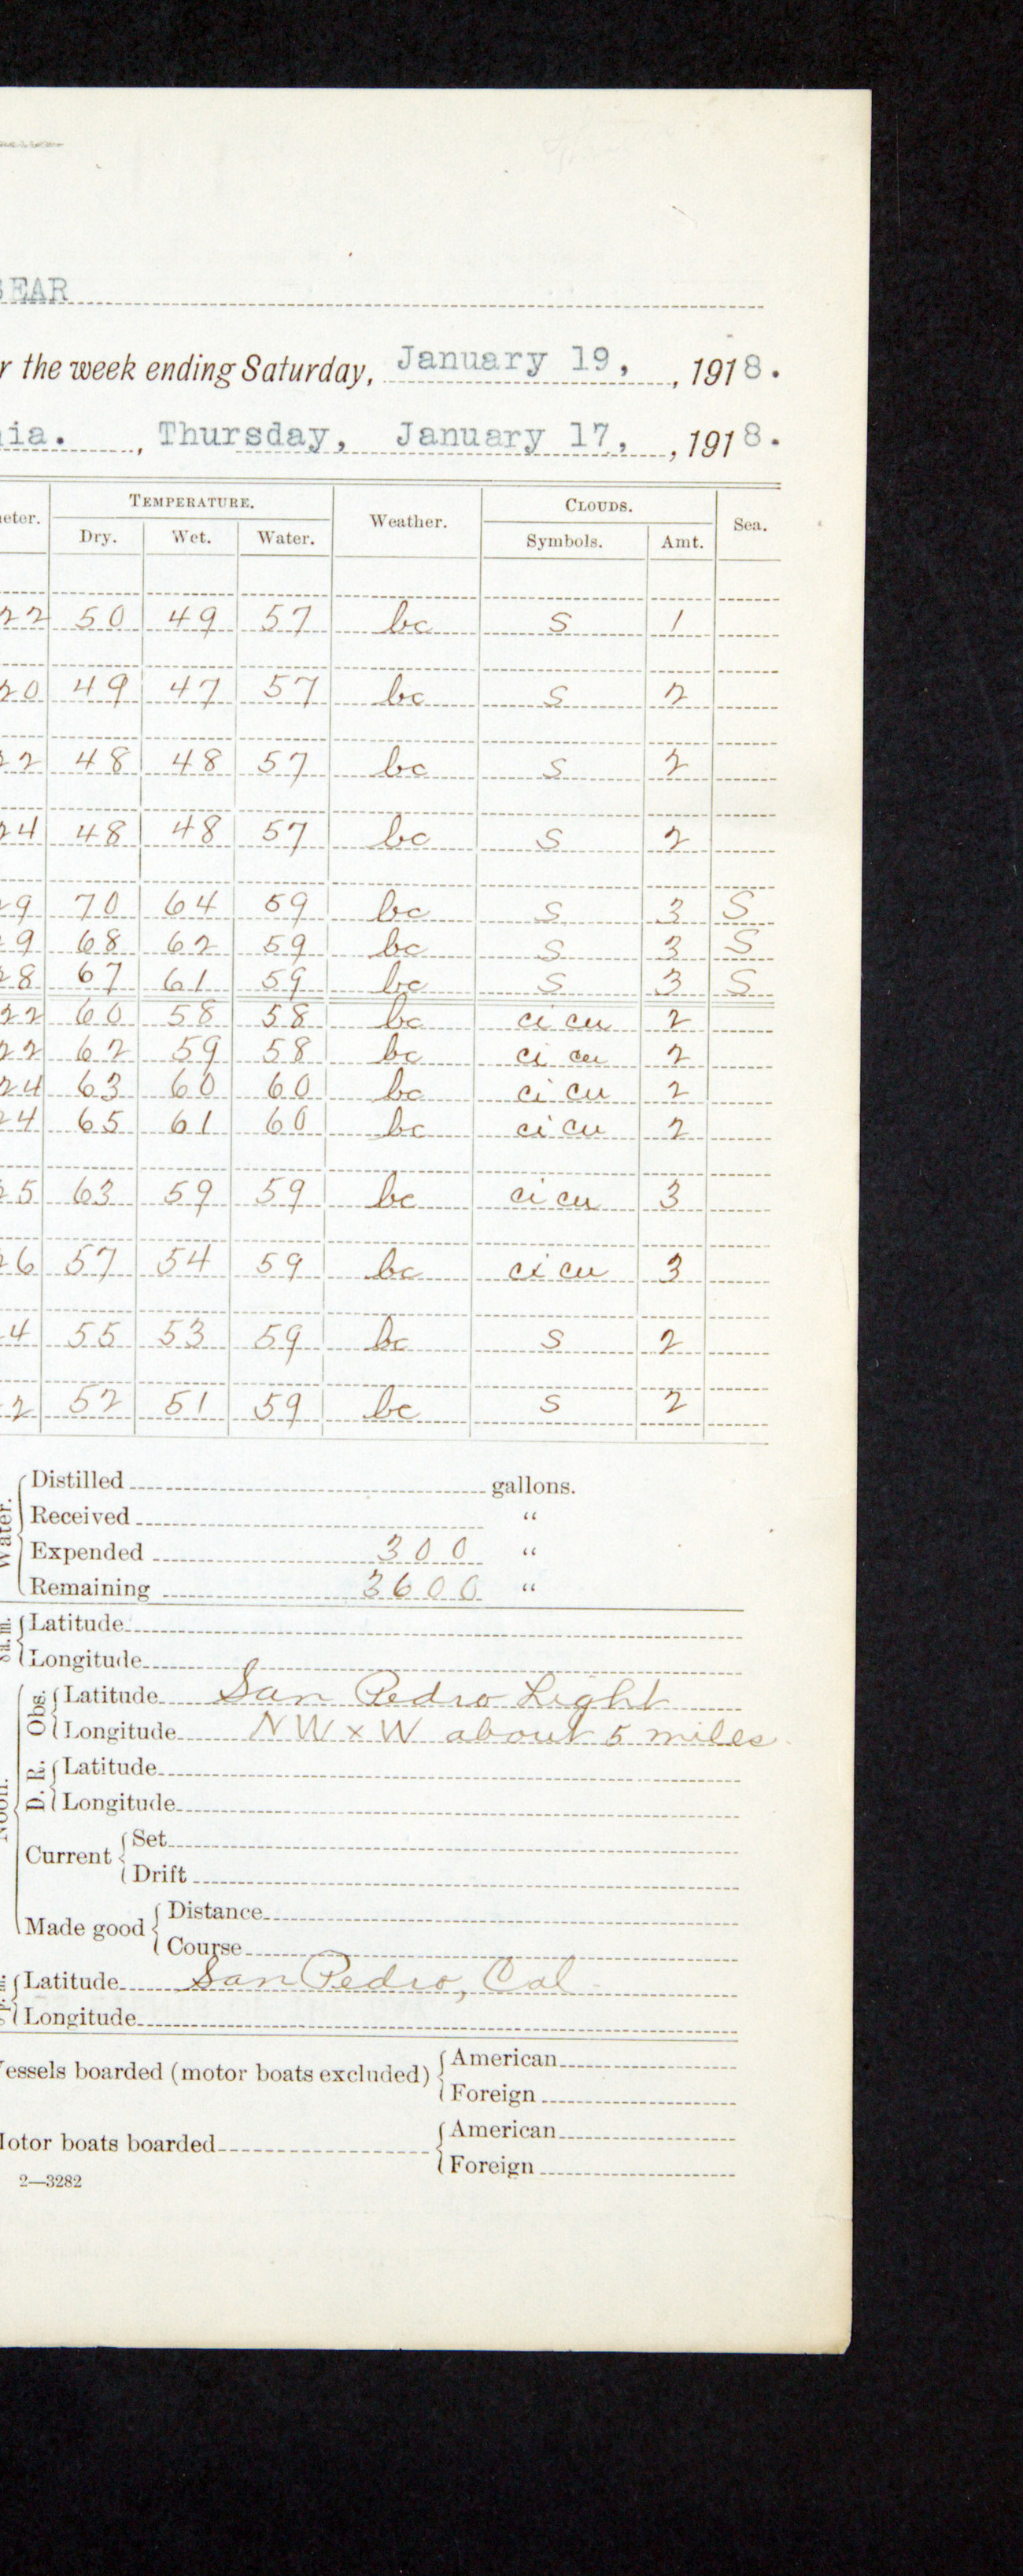 BEAR
r the week ending Saturday, January 19, , 1918.
nia. , Thursday, January 17, , 1918.
eter. TEMPERATURE. Weather. CLOUDS. Sea.
Dry. Wet. Water. Symbols. Amt.
22 50 49 57 bc S 1
20 49 47 57 bc S 2
22 48 48 57 bc S 2
24 48 48 57 bc S 2
29 70 64 59 bc S 3 S
29 68 62 59 bc S 3 S
28 67 61 59 bc S 3 S
22 60 58 58 bc ci cu 2
22 62 59 58 bc ci cu 2
24 63 60 60 bc ci cu 2
24 65 61 60 bc ci cu 2
25 63 59 59 bc ci cu 3
26 57 54 59 bc ci cu 3
4 55 53 59 bc S 2
2 52 51 59 bc S 2
Water. Distilled gallons.
Received "
Expended 300 "
Remaining 3600 "
8 a. m. Latitude
Longitude
Noon. Obs. Latitude San Pedro Light
Longitude NW x W about 5 miles.
D. R. Latitude
Longitude
Current Set
Drift
Made good Distance
Course
Latitude San Pedro, Cal.
Longitude
Vessels boarded (motor boats excluded) American
Foreign
Motor boats boarded American
Foreign
2—3282